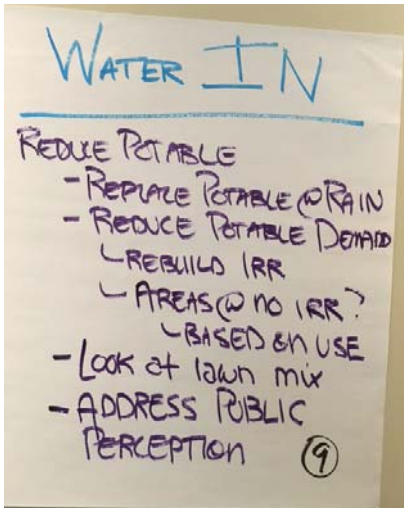 WATER IN
REDUCE POTABLE
- REPLACE POTABLE @ RAIN
- REDUCE POTABLE DEMAND
└ REBUILD IRR
└ AREAS @ NO IRR?
└ BASED ON USE
- LOOK at lawn mix
- ADDRESS PUBLIC
PERCEPTION
9